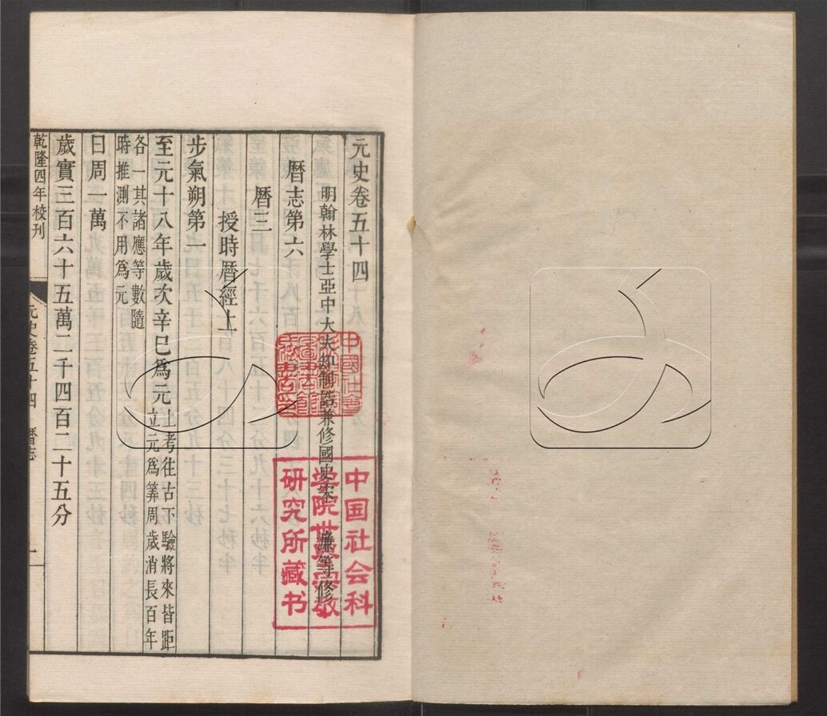 元史卷五十四
明翰林學士亞中大夫知制誥兼修國史宋 濂等修
曆志第六
曆三
授時曆經上
步氣朔第一
至元十八年歲次辛巳爲元上考往古下驗將來皆距
立元爲筭周歲消長百年
各一其諸應等數隨
時推測不用爲元
日周一萬
歲實三百六十五萬二千四百二十五分
乾隆四年校刊
元史卷五十四 曆志
一
中国社会科
学院世界宗教
研究所藏书